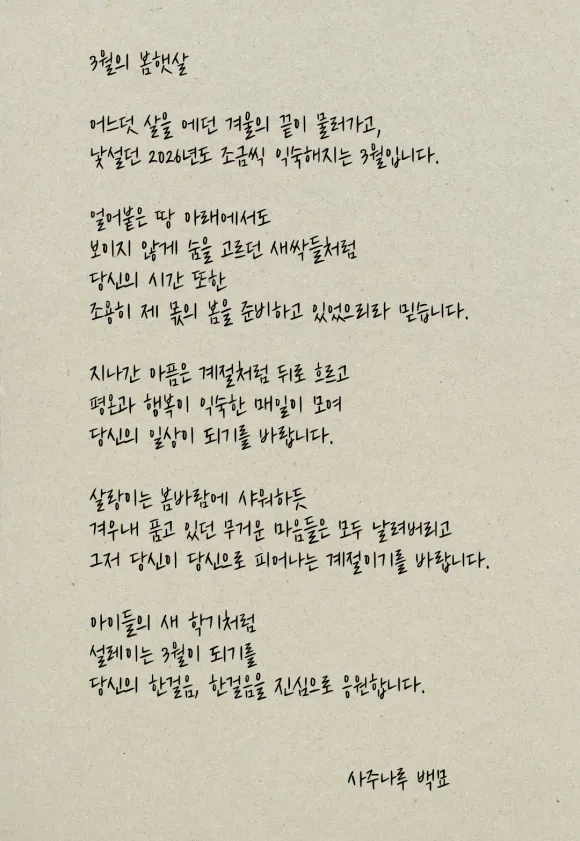 3월의 봄햇살
어느덧 살을 에던 겨울의 끝이 물러가고,
낯설던 2026년도 조금씩 익숙해지는 3월입니다.
얼어붙은 땅 아래에서도
보이지 않게 숨을 고르던 새싹들처럼
당신의 시간 또한
조용히 제 몫의 봄을 준비하고 있었으리라 믿습니다.
지나간 아픔은 계절처럼 뒤로 흐르고
평온과 행복이 익숙한 매일이 모여
당신의 일상이 되기를 바랍니다.
살랑이는 봄바람에 샤워하듯
겨우내 품고 있던 무거운 마음들은 모두 날려버리고
그저 당신이 당신으로 피어나는 계절이기를 바랍니다.
아이들의 새 학기처럼
설레이는 3월이 되기를
당신의 한걸음, 한걸음을 진심으로 응원합니다.
사주나루 백묘